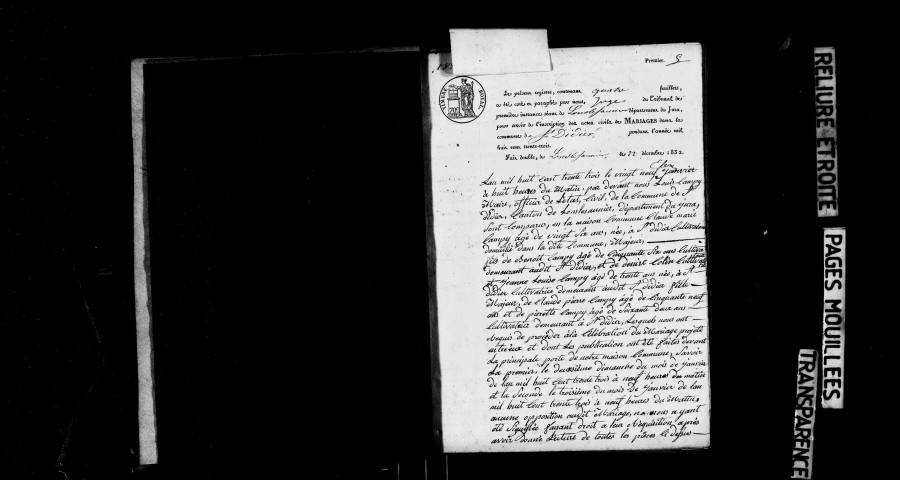 Premier 5
TIMBRE ROYAL
Le présent registre, contenant quatre feuillets,
a été coté et paraphé par nous, Juge du Tribunal de
première instance séant à Lons-le-Saunier département du Jura,
pour servir à l'inscription des actes civils de MARIAGES dans la
commune de St Didier pendant l'année mil
huit cent trente-trois.
Fait double, le décembre 1832.
Lan mil huit Cent trente trois le vingt neuf Janvier
à huit heures du Matin, par devant nous Louis Campy
Maire, officier de Létat, Civil, de la Commune de St
didier, Canton de Lonslesaunier, département du Jura,
Sont Comparus, en la maison Commune Claude marie
Campy âgé de vingt Six ans, né, à St didier Cultivateur
domicilié dans la dite Commune, Majeur,
fils de Benoit Campy âgé de Cinquante Six ans Cultivateur
demeurant audit St didier, et de denise
et Jeanne Louise Campy âgé de trente ans née, à St
didier Cultivatrice demeurant audit St didier fille
Majeur, de Claude pierre Campy âgé de Cinquante neuf
ans et de pierrette Campy âgé de Soixante deux ans
Cultivateur demeurant à St didier, Lesquels nous ont
requis de procéder à la Célébration du Mariage projeté
entr'eux et dont les publication ont été faites devant
La principale porte de notre maison Commune, Savoir
La premiere, le deuxième dimanche du mois de Janvier
de lan mil huit Cent trente trois à neuf heures du matin
et la Seconde le troisième du mois de Janvier de lan
mil huit Cent trente trois à neuf heures du Matin,
aucune opposition audit Mariage, ne nous ayant
été Signifiée faisant droit a leur réquisition, après
avoir donné Lecture de toutes les pièces Ci dessus
RELIURE ETROITE
PAGES MOUILLEES
TRANSPARENCE